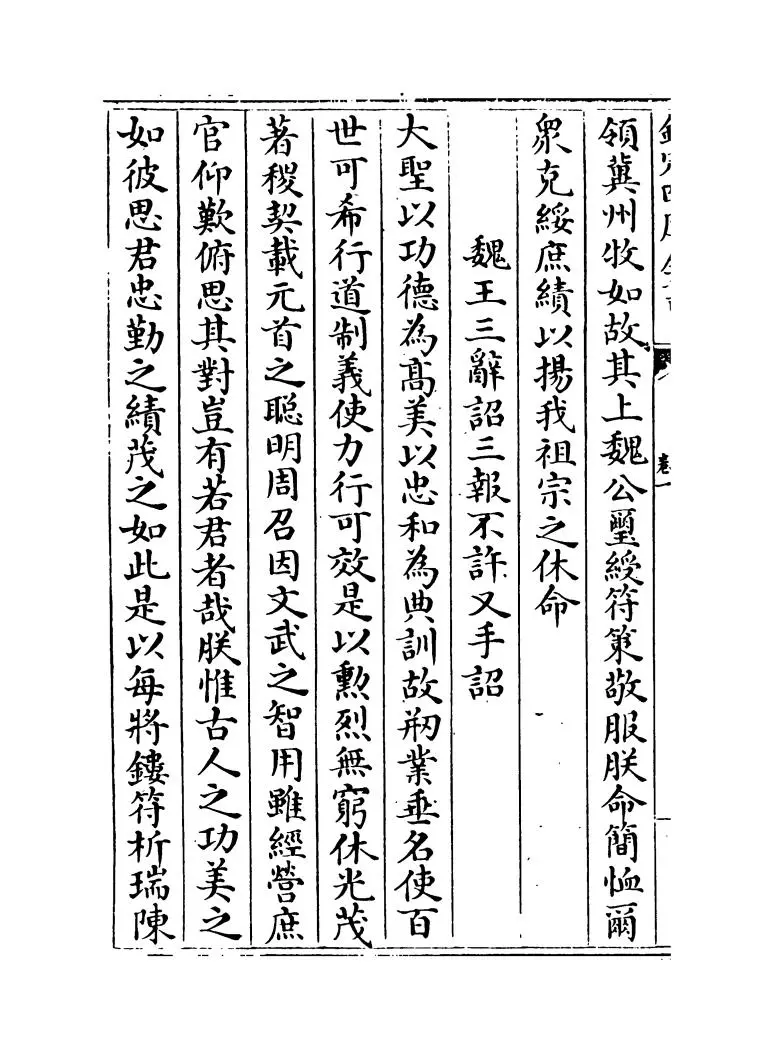 卷一
領冀州牧如故其上魏公璽綬符策敬服朕命簡恤爾
衆克綏庶績以揚我祖宗之休命
魏王三辭詔三報不許又手詔
大聖以功德為髙美以忠和為典訓故刱業垂名使百
世可希行道制義使力行可效是以勲烈無窮休光茂
著稷契載元首之聰明周召因文武之智用雖經營庶
官仰歎俯思其對豈有若君者哉朕惟古人之功美之
如彼思君忠勤之績茂之如此是以每將鏤符析瑞陳